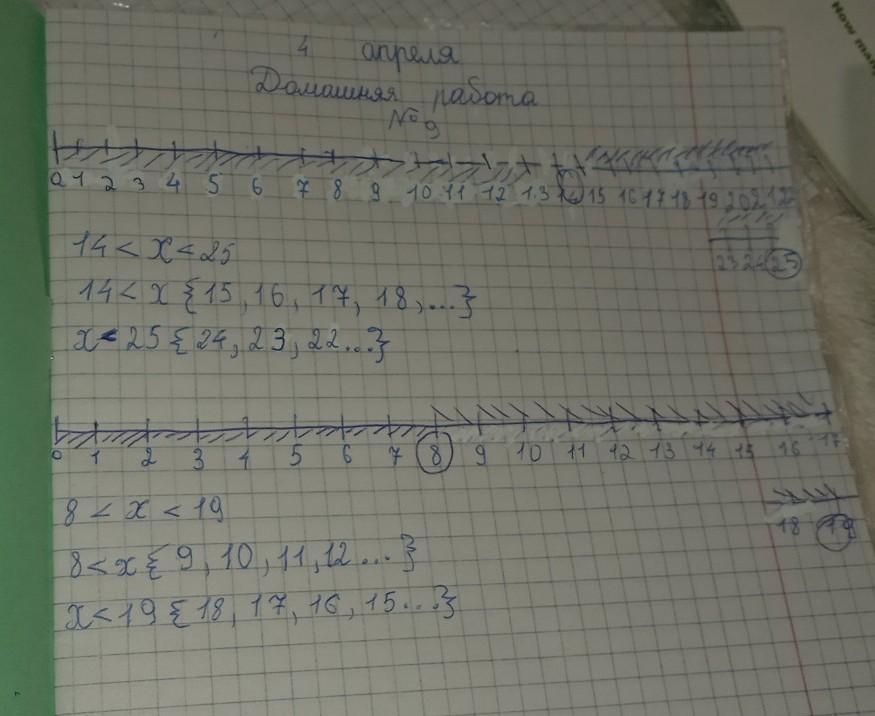 4 апреля
Домашняя работа
№9
0 1 2 3 4 5 6 7 8 9 10 11 12 13 14 15 16 17 18 19 20 21 22
23 24 25
14 < x < 25
14 < x {15, 16, 17, 18, ...}
x < 25 {24, 23, 22...}
0 1 2 3 4 5 6 7 8 9 10 11 12 13 14 15 16 17
18 19
8 < x < 19
8 < x { 9, 10, 11, 12 ... }
x < 19 {18, 17, 16, 15...}